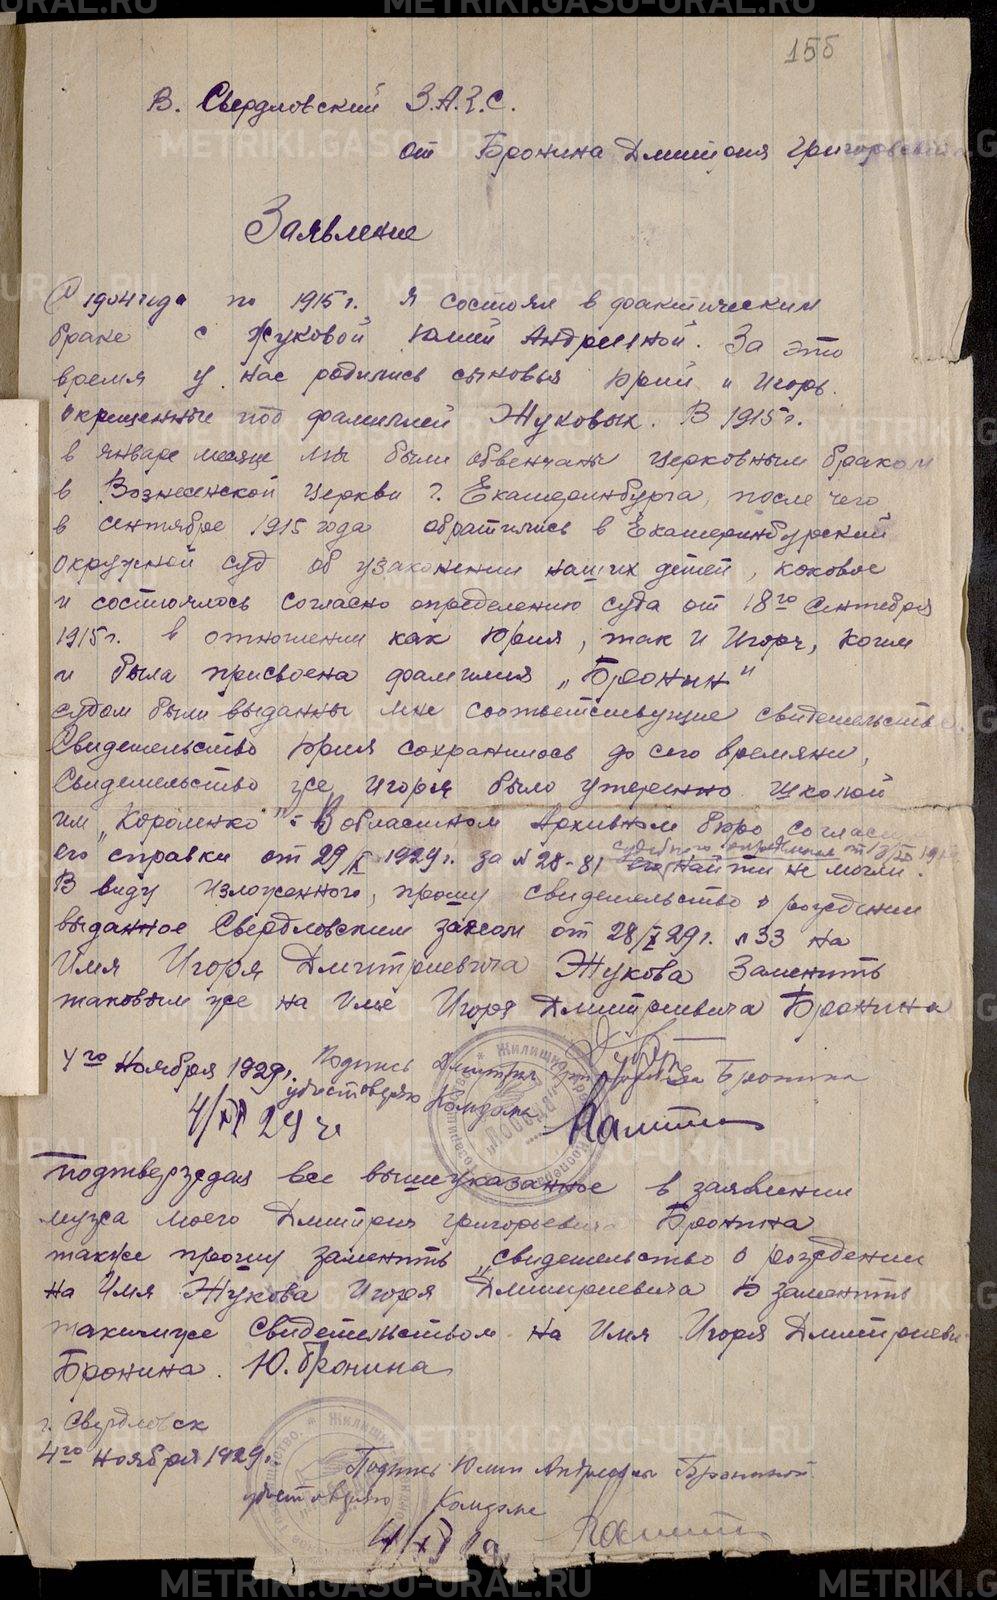 155
В. Свердловский З.А.Г.С.
от Бронина Дмитрия Григорьевича
Заявление
С 1904 года по 1915 г. я состоял в фактическим
браке с Жуковой Юлией Андреевной. За это
время у нас родились сыновья Юрий и Игорь.
Окрещенные под фамилией Жуковых. В 1915 г.
в январе месяце мы были обвенчаны церковным браком
в Вознесенской церкви г. Екатеринбурга, после чего
в сентябре 1915 года обратились в Екатеринбурский
окружной суд об узаконении наших детей, каковое
и состоялось согласно определению суда от 18го сентября
1915 г. в отношении как Юрия, так и Игоря, коим
и была присвоена фамилия „Бронин"
судом были выданны мне соответствующие свидетельства.
Свидетельство Юрия сохранилось до сего времяни,
Свидетельство же Игоря было утеренно школой
им „Короленко". В областном Архивном бюро согласно
его справки от 29/X 1929 г. за № 28-81 судебного определения от 18/IX 1915 найти не могли.
В виду изложенного, прошу свидетельство о рождении
выданное Свердловским загсом от 28/X 29 г. № 33 на
Имя Игоря Дмитриевича Жукова Заменить
таковым же на Имя Игоря Дмитриевича Бронина
4го Ноября 1929 г. Подпись Дмитрия Григорьева Бронина
удостоверяю Комдом
4/XI 29 г.
Подтверждая все вышеуказанное в заявлении
мужа моего Дмитрия Григорьевича Бронина
также прошу заменить „свидетельство о рождении
на Имя Жукова Игоря Дмитриевича заменить
таким же свидетельством на Имя Игоря Дмитриевича
Бронина. Ю. Бронина
г. Свердловск
4го ноября 1929 г.
Подпись Юлии Андреевны Брониной
удостоверяю Комдом
4/XI